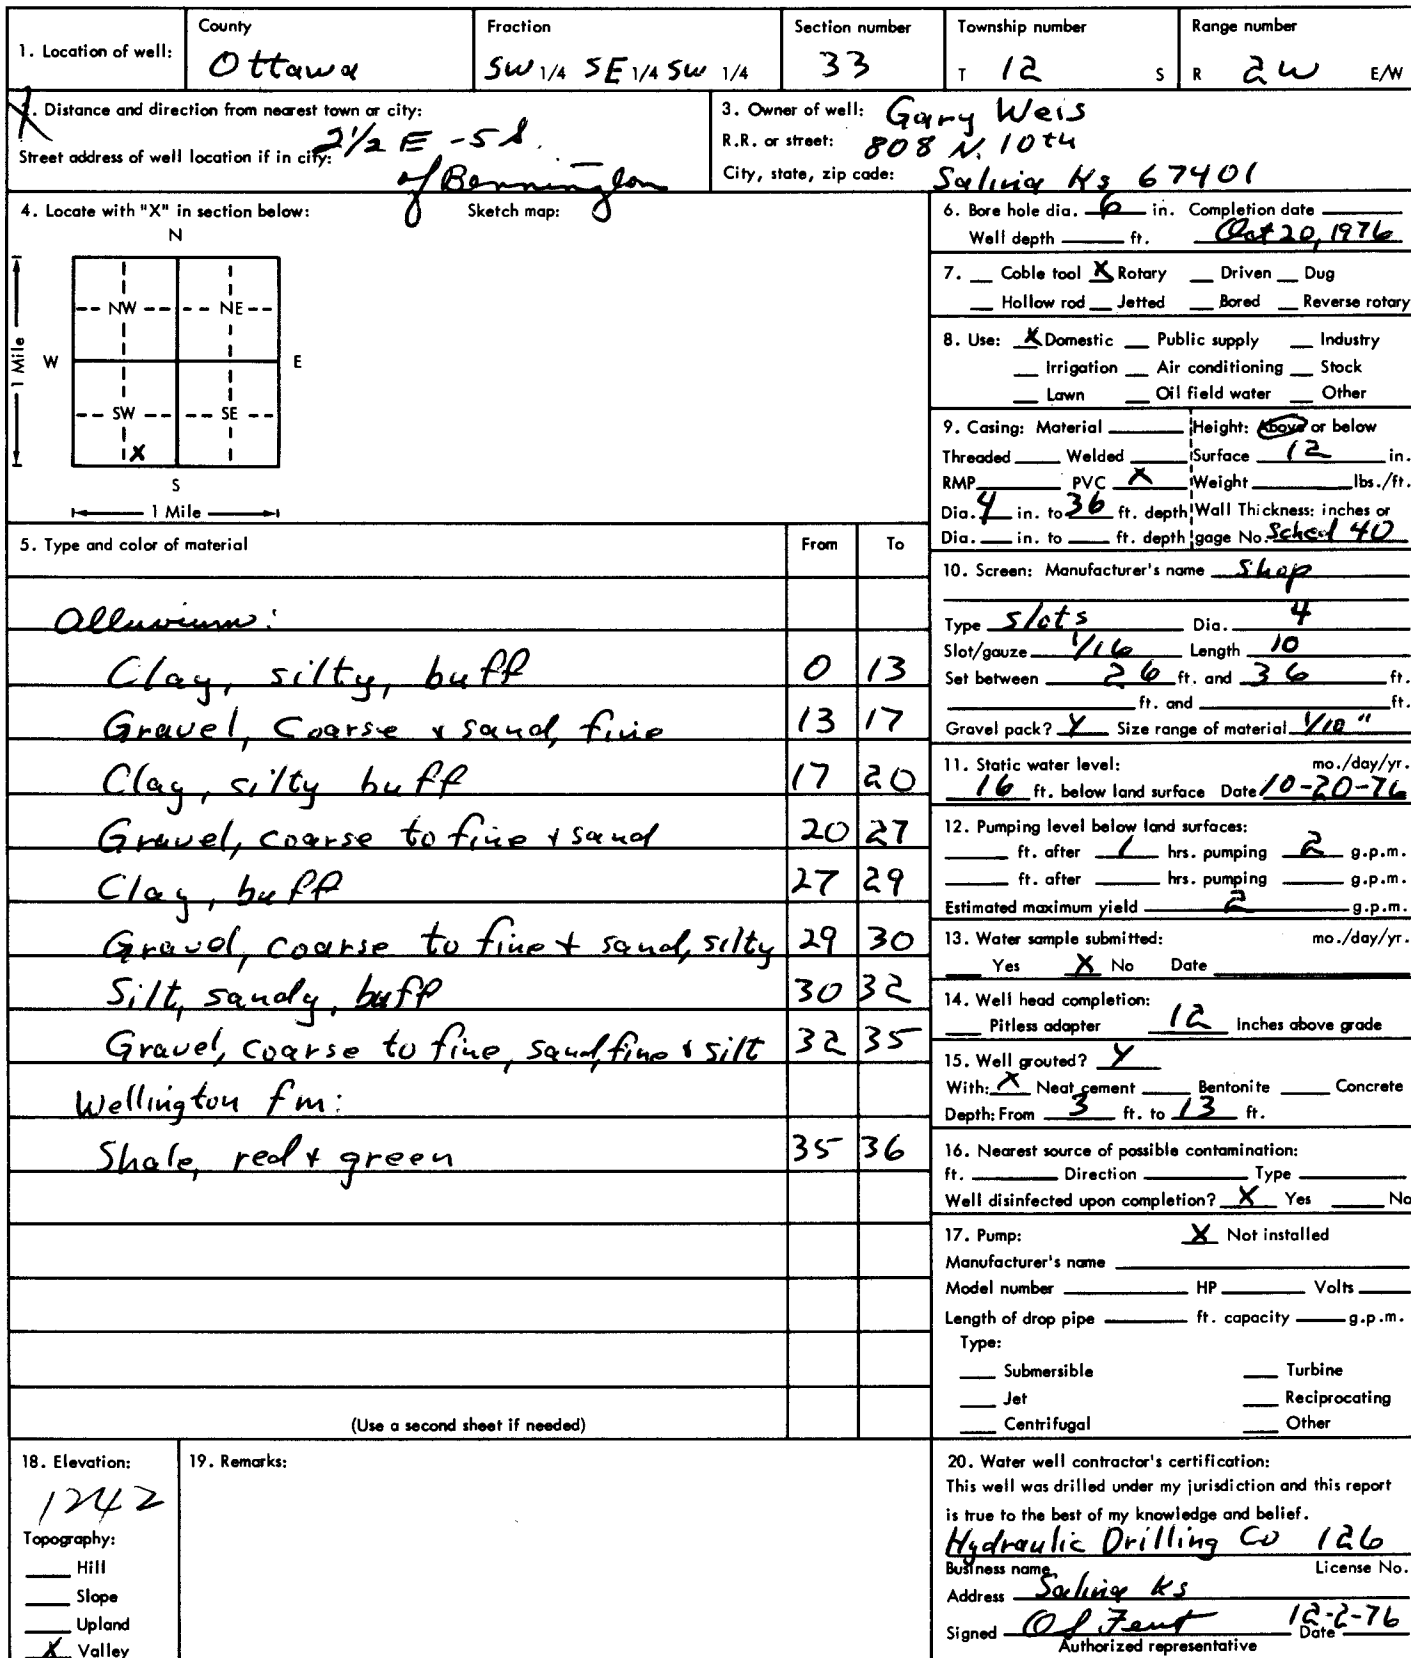 1. Location of well:
County
Ottawa
Fraction
SW 1/4 SE 1/4 SW 1/4
Section number
33
Township number
T 12 S
Range number
R 2W E/W
2. Distance and direction from nearest town or city:
2 1/2 E - 5 S.
Street address of well location if in city:
of Bennington
3. Owner of well: Gary Weis
R.R. or street: 808 N. 10th
City, state, zip code: Salina Ks 67401
4. Locate with "X" in section below:
Sketch map:
N
NW NE
W E
1 Mile
SW SE
X
S
1 Mile
5. Type and color of material From To
Alluvium:
Clay, silty, buff 0 13
Gravel, coarse & sand, fine 13 17
Clay, silty buff 17 20
Gravel, coarse to fine & sand 20 27
Clay, buff 27 29
Gravel, coarse to fine & sand, silty 29 30
Silt, sandy, buff 30 32
Gravel, coarse to fine, sand, fine & silt 32 35
Wellington fm:
Shale, red & green 35 36
(Use a second sheet if needed)
6. Bore hole dia. 6 in. Completion date
Well depth ___ ft. Oct 20, 1976
7. __ Cable tool X Rotary __ Driven __ Dug
__ Hollow rod __ Jetted __ Bored __ Reverse rotary
8. Use: X Domestic __ Public supply __ Industry
__ Irrigation __ Air conditioning __ Stock
__ Lawn __ Oil field water __ Other
9. Casing: Material ___ Height: Above or below
Threaded ___ Welded ___ Surface 12 in.
RMP ___ PVC X Weight ___ lbs./ft.
Dia. 4 in. to 36 ft. depth Wall Thickness: inches or
Dia. ___ in. to ___ ft. depth gage No. Sched 40
10. Screen: Manufacturer's name Shop
Type slots Dia. 4
Slot/gauze 1/16 Length 10
Set between 26 ft. and 36 ft.
___ ft. and ___ ft.
Gravel pack? Y Size range of material 1/10"
11. Static water level: mo./day/yr.
16 ft. below land surface Date 10-20-76
12. Pumping level below land surfaces:
___ ft. after 1 hrs. pumping 2 g.p.m.
___ ft. after ___ hrs. pumping ___ g.p.m.
Estimated maximum yield 2 g.p.m.
13. Water sample submitted: mo./day/yr.
___ Yes X No Date ___
14. Well head completion:
___ Pitless adapter 12 Inches above grade
15. Well grouted? Y
With: X Neat cement ___ Bentonite ___ Concrete
Depth: From 3 ft. to 13 ft.
16. Nearest source of possible contamination:
ft. ___ Direction ___ Type ___
Well disinfected upon completion? X Yes ___ No
17. Pump: X Not installed
Manufacturer's name ___
Model number ___ HP ___ Volts ___
Length of drop pipe ___ ft. capacity ___ g.p.m.
Type:
___ Submersible ___ Turbine
___ Jet ___ Reciprocating
___ Centrifugal ___ Other
18. Elevation:
1242
Topography:
___ Hill
___ Slope
___ Upland
X Valley
19. Remarks:
20. Water well contractor's certification:
This well was drilled under my jurisdiction and this report
is true to the best of my knowledge and belief.
Hydraulic Drilling Co 126
Business name License No.
Address Salina Ks
Signed O S Fent Date 12-2-76
Authorized representative